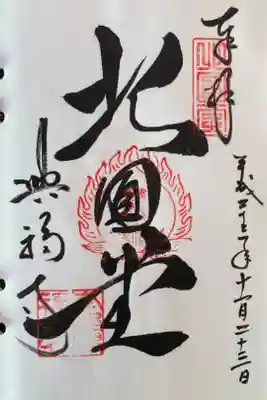 奉拝
平成 年十一月二十三日
北圓堂
興福寺